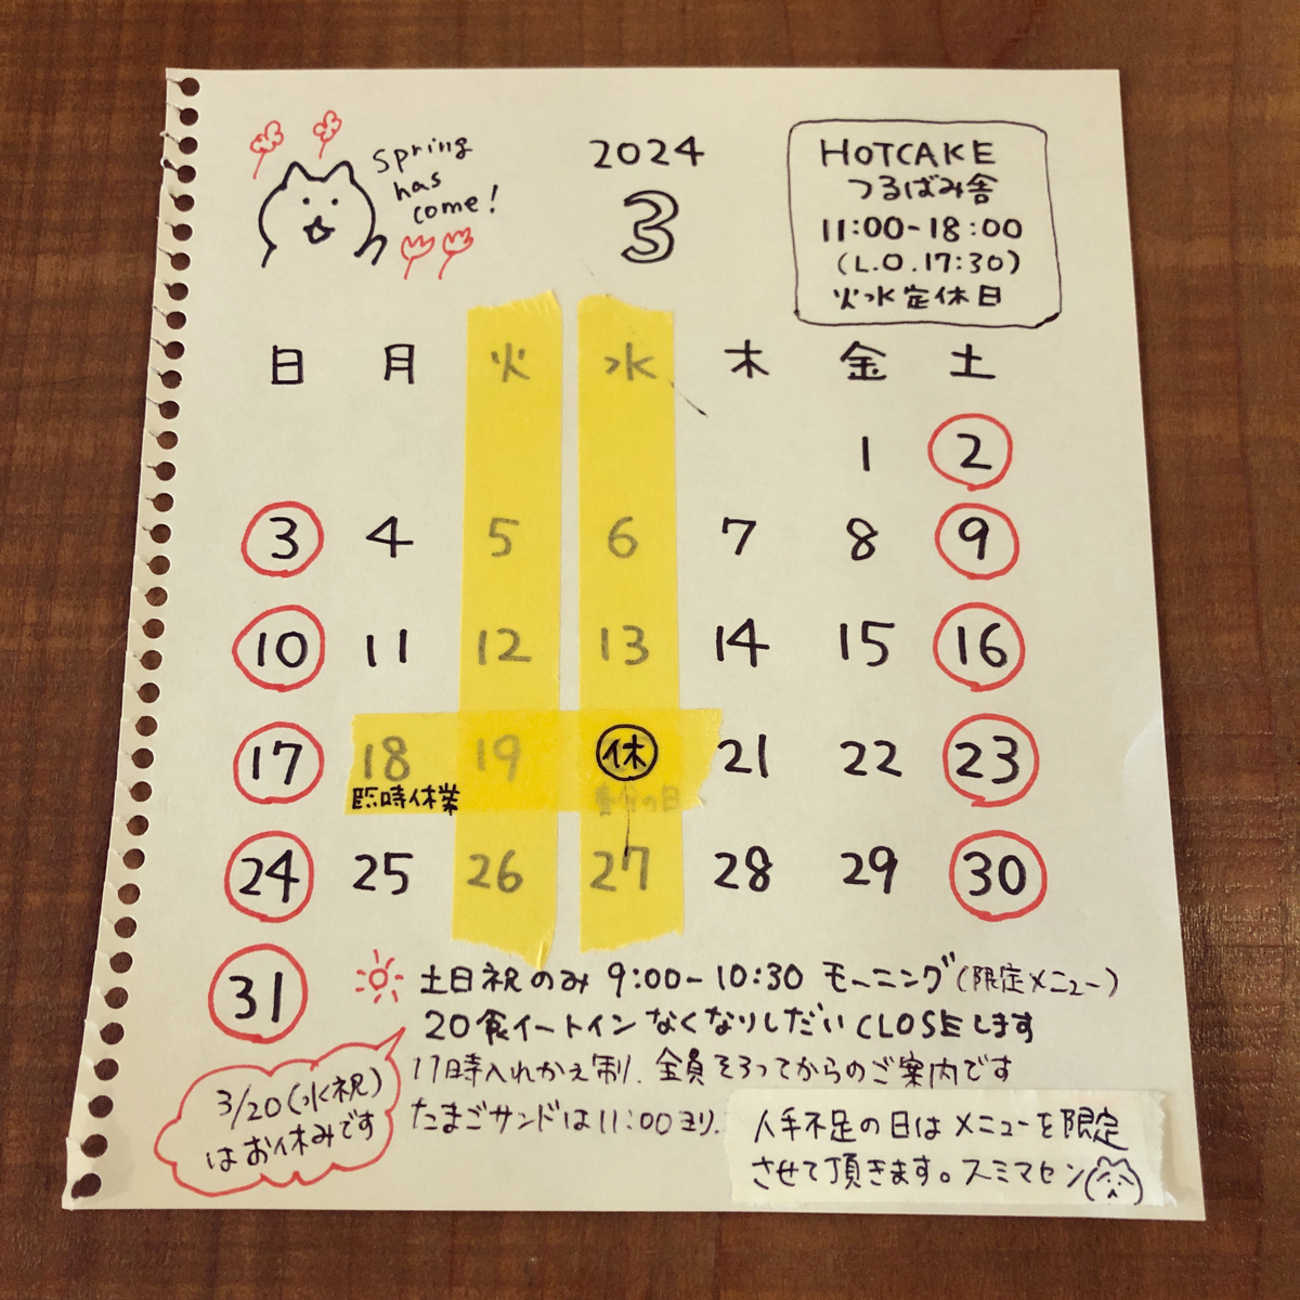 Spring
has
come!
2024
3
HOTCAKE
つるばみ舎
11:00-18:00
(L.O.17:30)
火水定休日
日 月 火 水 木 金 土
1 2
3 4 5 6 7 8 9
10 11 12 13 14 15 16
17 18 19 休 21 22 23
臨時休業 春分の日
24 25 26 27 28 29 30
31
土日祝のみ 9:00-10:30 モーニング(限定メニュー)
20食イートイン なくなりしだいCLOSEします
11時入れかえ制. 全員そろってからのご案内です
たまごサンドは11:00ヨリ.
3/20(水祝)
はお休みです
人手不足の日はメニューを限定
させて頂きます。スミマセン